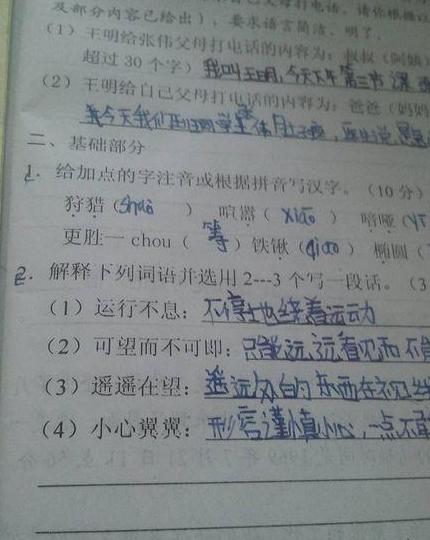 及部分内容已给出），要求语言简洁、明了。
（1）王明给张伟父母打电话的内容为：叔叔（阿姨
超过30个字）我叫王明，今天下午第三节课
（2）王明给自己父母打电话的内容为：爸爸（妈妈
我今天我们班同学 体 肚子痛，医生说
二、基础部分
1. 给加点的字注音或根据拼音写汉字。（10分）
狩猎（shǒu ） 喧嚣（xiāo ） 喑哑（
更胜一chou（ 等 ）铁锹（qiāo ） 椭圆（
2. 解释下列词语并选用2---3个写一段话。（3
（1）运行不息：不停地绕着运动
（2）可望而不可即：只能远远看见而不
（3）遥遥在望：遥远处的东西在视
（4）小心翼翼：形容谨慎小心，一点不敢